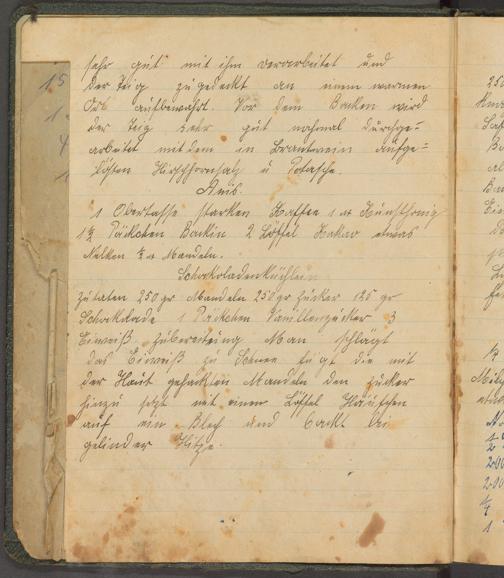 sehr gut mit ihm verarbeitet und
der Teig zugedeckt an einem warmen
Ort aufbewahrt. Vor dem Backen wird
der Teig sehr gut nochmal durchge=
arbeitet mit dem in Brantwein aufge=
lösten Hirschhornsalz u Potasche.
Anis.
1 Obertasse starken Kaffee 1 Kunsthonig
1½ Päckchen Backin 2 Löffel Kakao etwas
Nelken ½ Mandeln.
Schokoladenküchlein
Zutaten 250 gr Mandeln 250 gr Zucker 125 gr
Schokolade 1 Päckchen Vanillenzucker 3
Eiweiß Zubereitung Man schlägt
das Eiweiß zu Schnee fügt die mit
der Haut gehackten Mandeln den Zucker
hinzu setzt mit einem Löffel Häufchen
auf ein Blech und backt bei
gelinder Hitze.